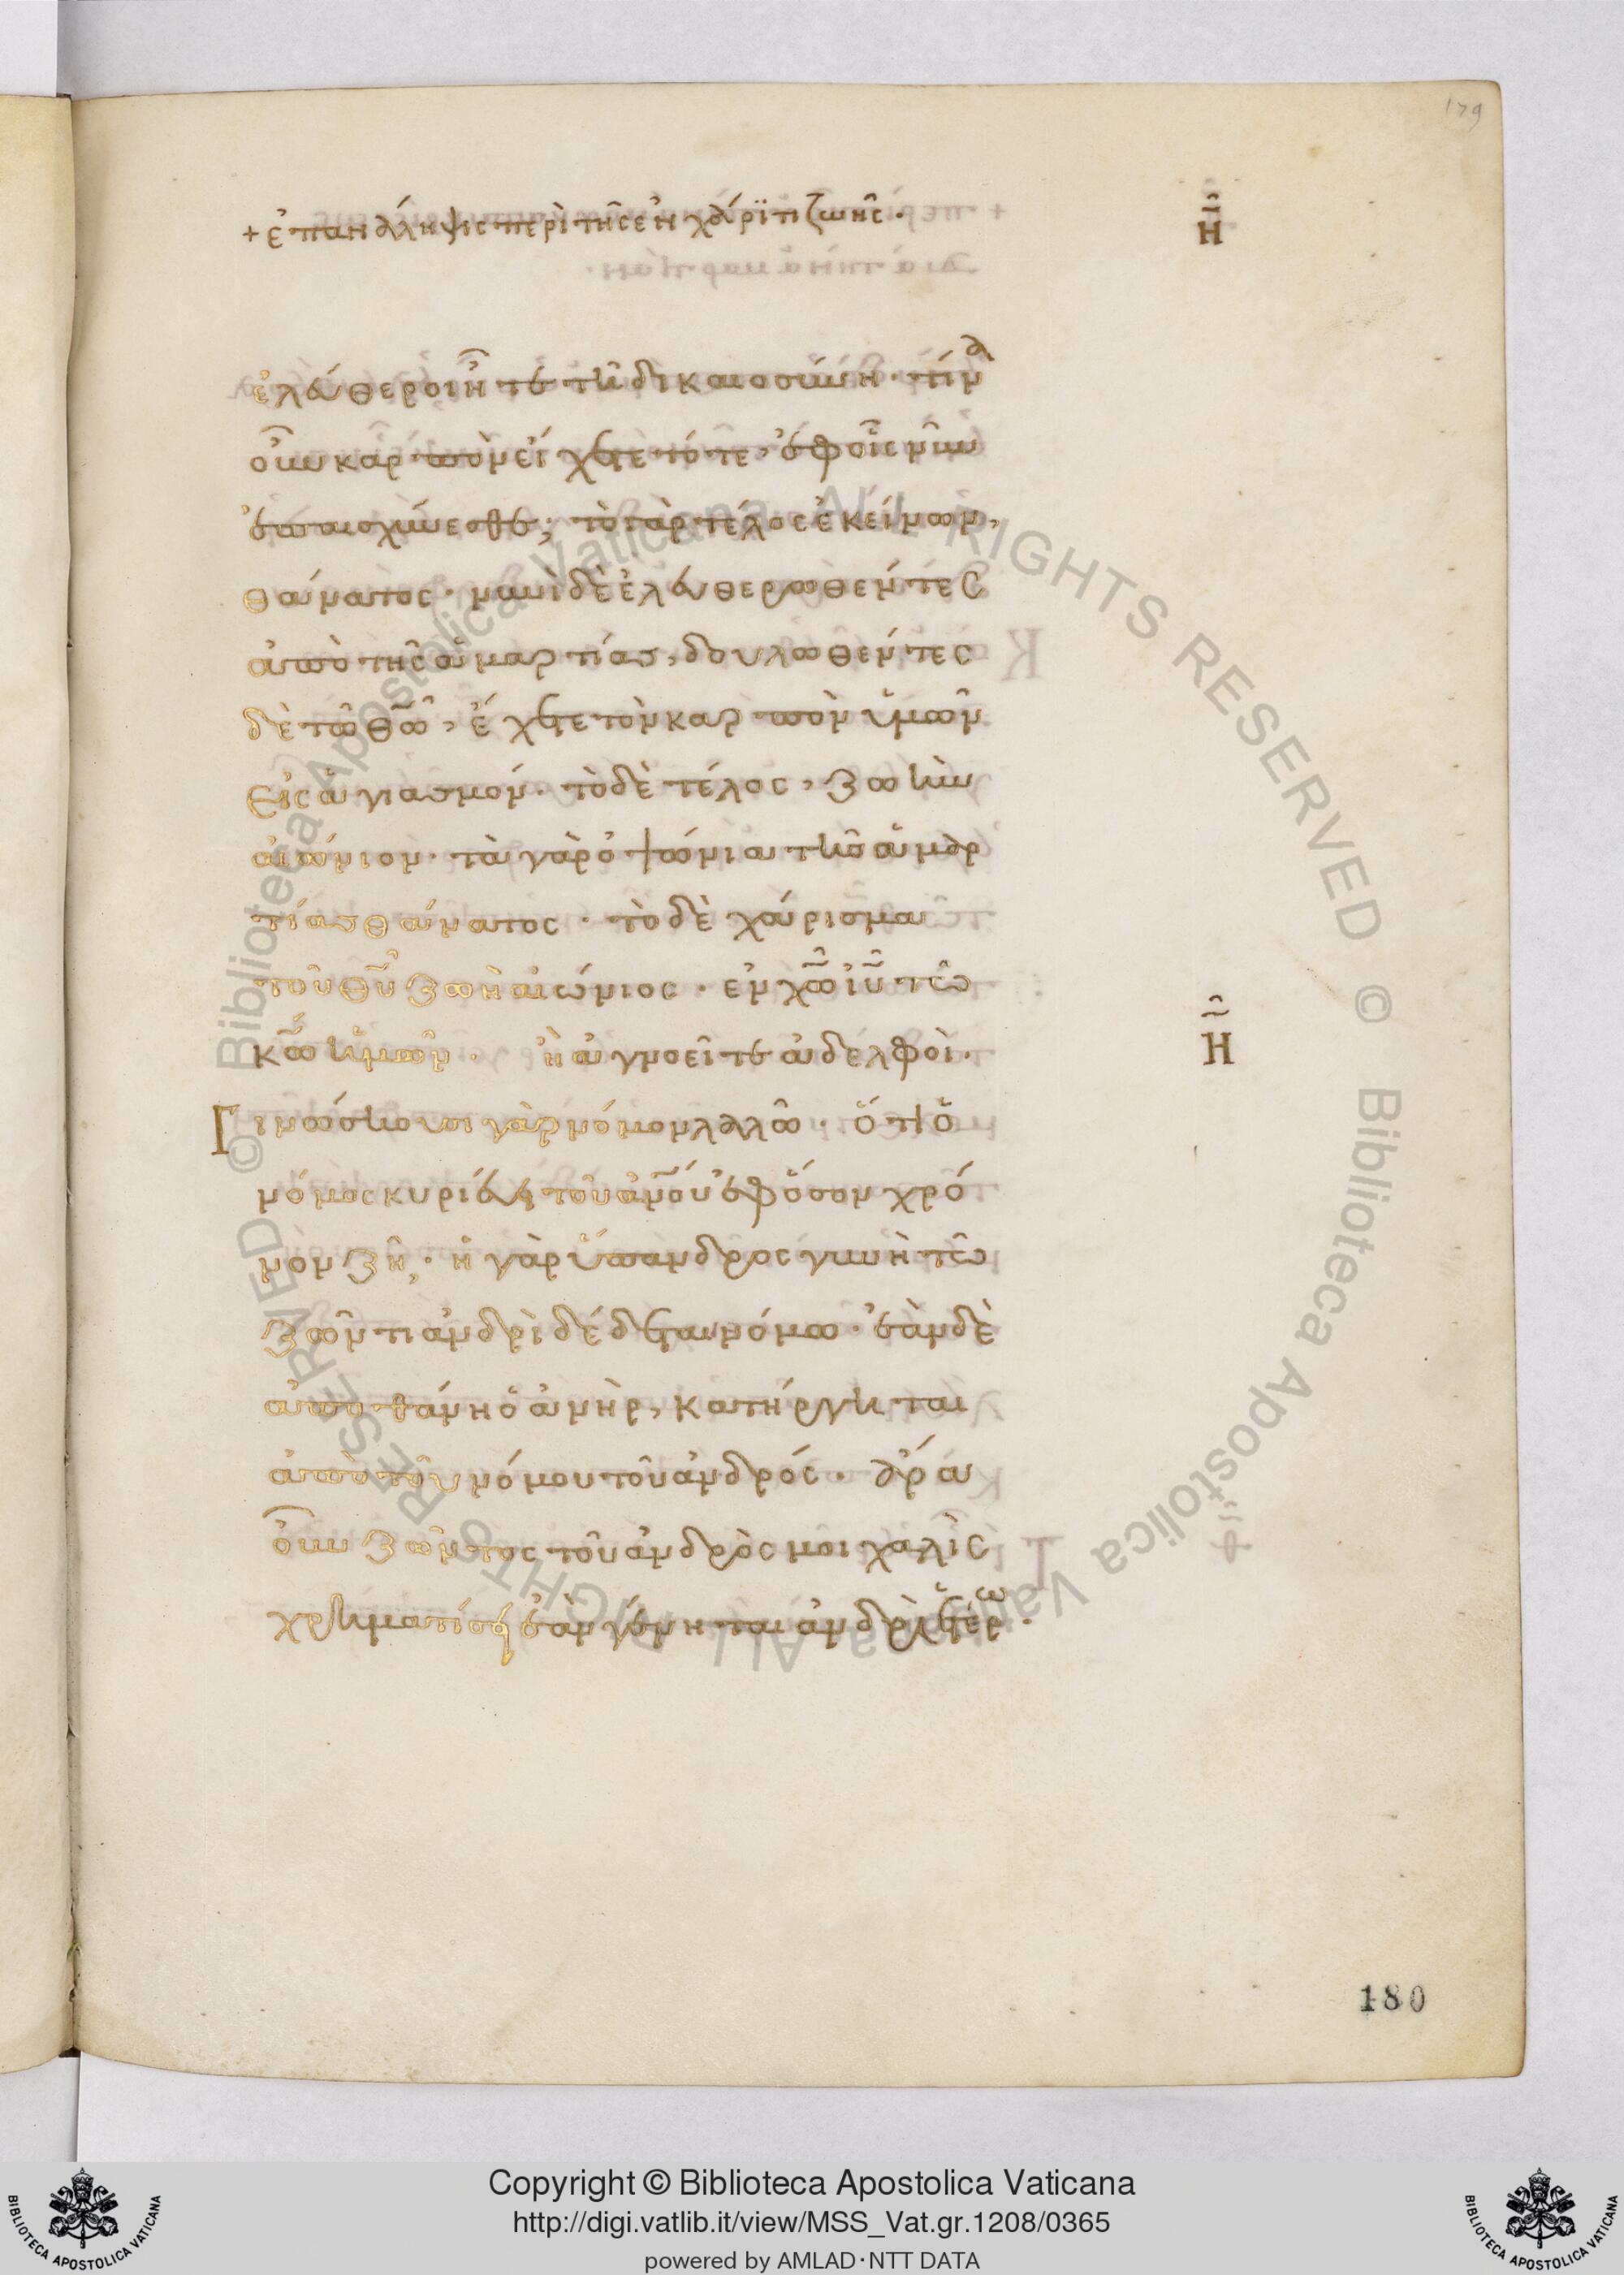 179
+ ἐπανάληψις περὶ τῆς ἐν χάριτι ζωῆς.
Η
ἐλεύθεροι ἦτε τῆ δικαιοσύνη· τίνα
οὖν καρπὸν εἴχετε τότε, ἐφ οἷς νῦν
ἐπαισχύνεσθε; τὸ γὰρ τέλος ἐκείνων,
θάνατος· νυνὶ δὲ ἐλευθερωθέντες
ἀπὸ τῆς ἁμαρτίας, δουλωθέντες
δὲ τῶ θῶ, ἔχετε τὸν καρπὸν ὑμῶν
εἰς ἁγιασμόν· τὸ δὲ τέλος, ζωὴν
αἰώνιον· τὰ γὰρ ὀψώνια τῆς ἁμαρ
τίας θάνατος· τὸ δὲ χάρισμα
τοῦ θῦ ζωὴ αἰώνιος· ἐν χῶ ἰῦ τῶ
κῶ ἡμῶν· ἢ ἀγνοεῖτε ἀδελφοὶ·
Η
Γινώσκουσι γὰρ νόμον λαλῶ· ὅτι ὁ
νόμος κυριεύει τοῦ ἀνου ἐφ ὅσον χρό
νον ζῆ· ἡ γὰρ ὕπανδρος γυνὴ τῶ
ζῶντι ἀνδρὶ δέδεται νόμω· ἐὰν δὲ
ἀποθάνη ὁ ἀνὴρ, κατήργηται
ἀπὸ τοῦ νόμου τοῦ ἀνδρός· ἄρα
οὖν ζῶντος τοῦ ἀνδρὸς μοιχαλὶς
χρηματίσει ἐὰν γένηται ἀνδρὶ ἑτέρω·
180
© Biblioteca Apostolica Vaticana ALL RIGHTS RESERVED © Biblioteca Apostolica Vaticana ALL RIGHTS RESERVED
Copyright © Biblioteca Apostolica Vaticana
http://digi.vatlib.it/view/MSS_Vat.gr.1208/0365
powered by AMLAD·NTT DATA
BIBLIOTECA APOSTOLICA VATICANA
BIBLIOTECA APOSTOLICA VATICANA